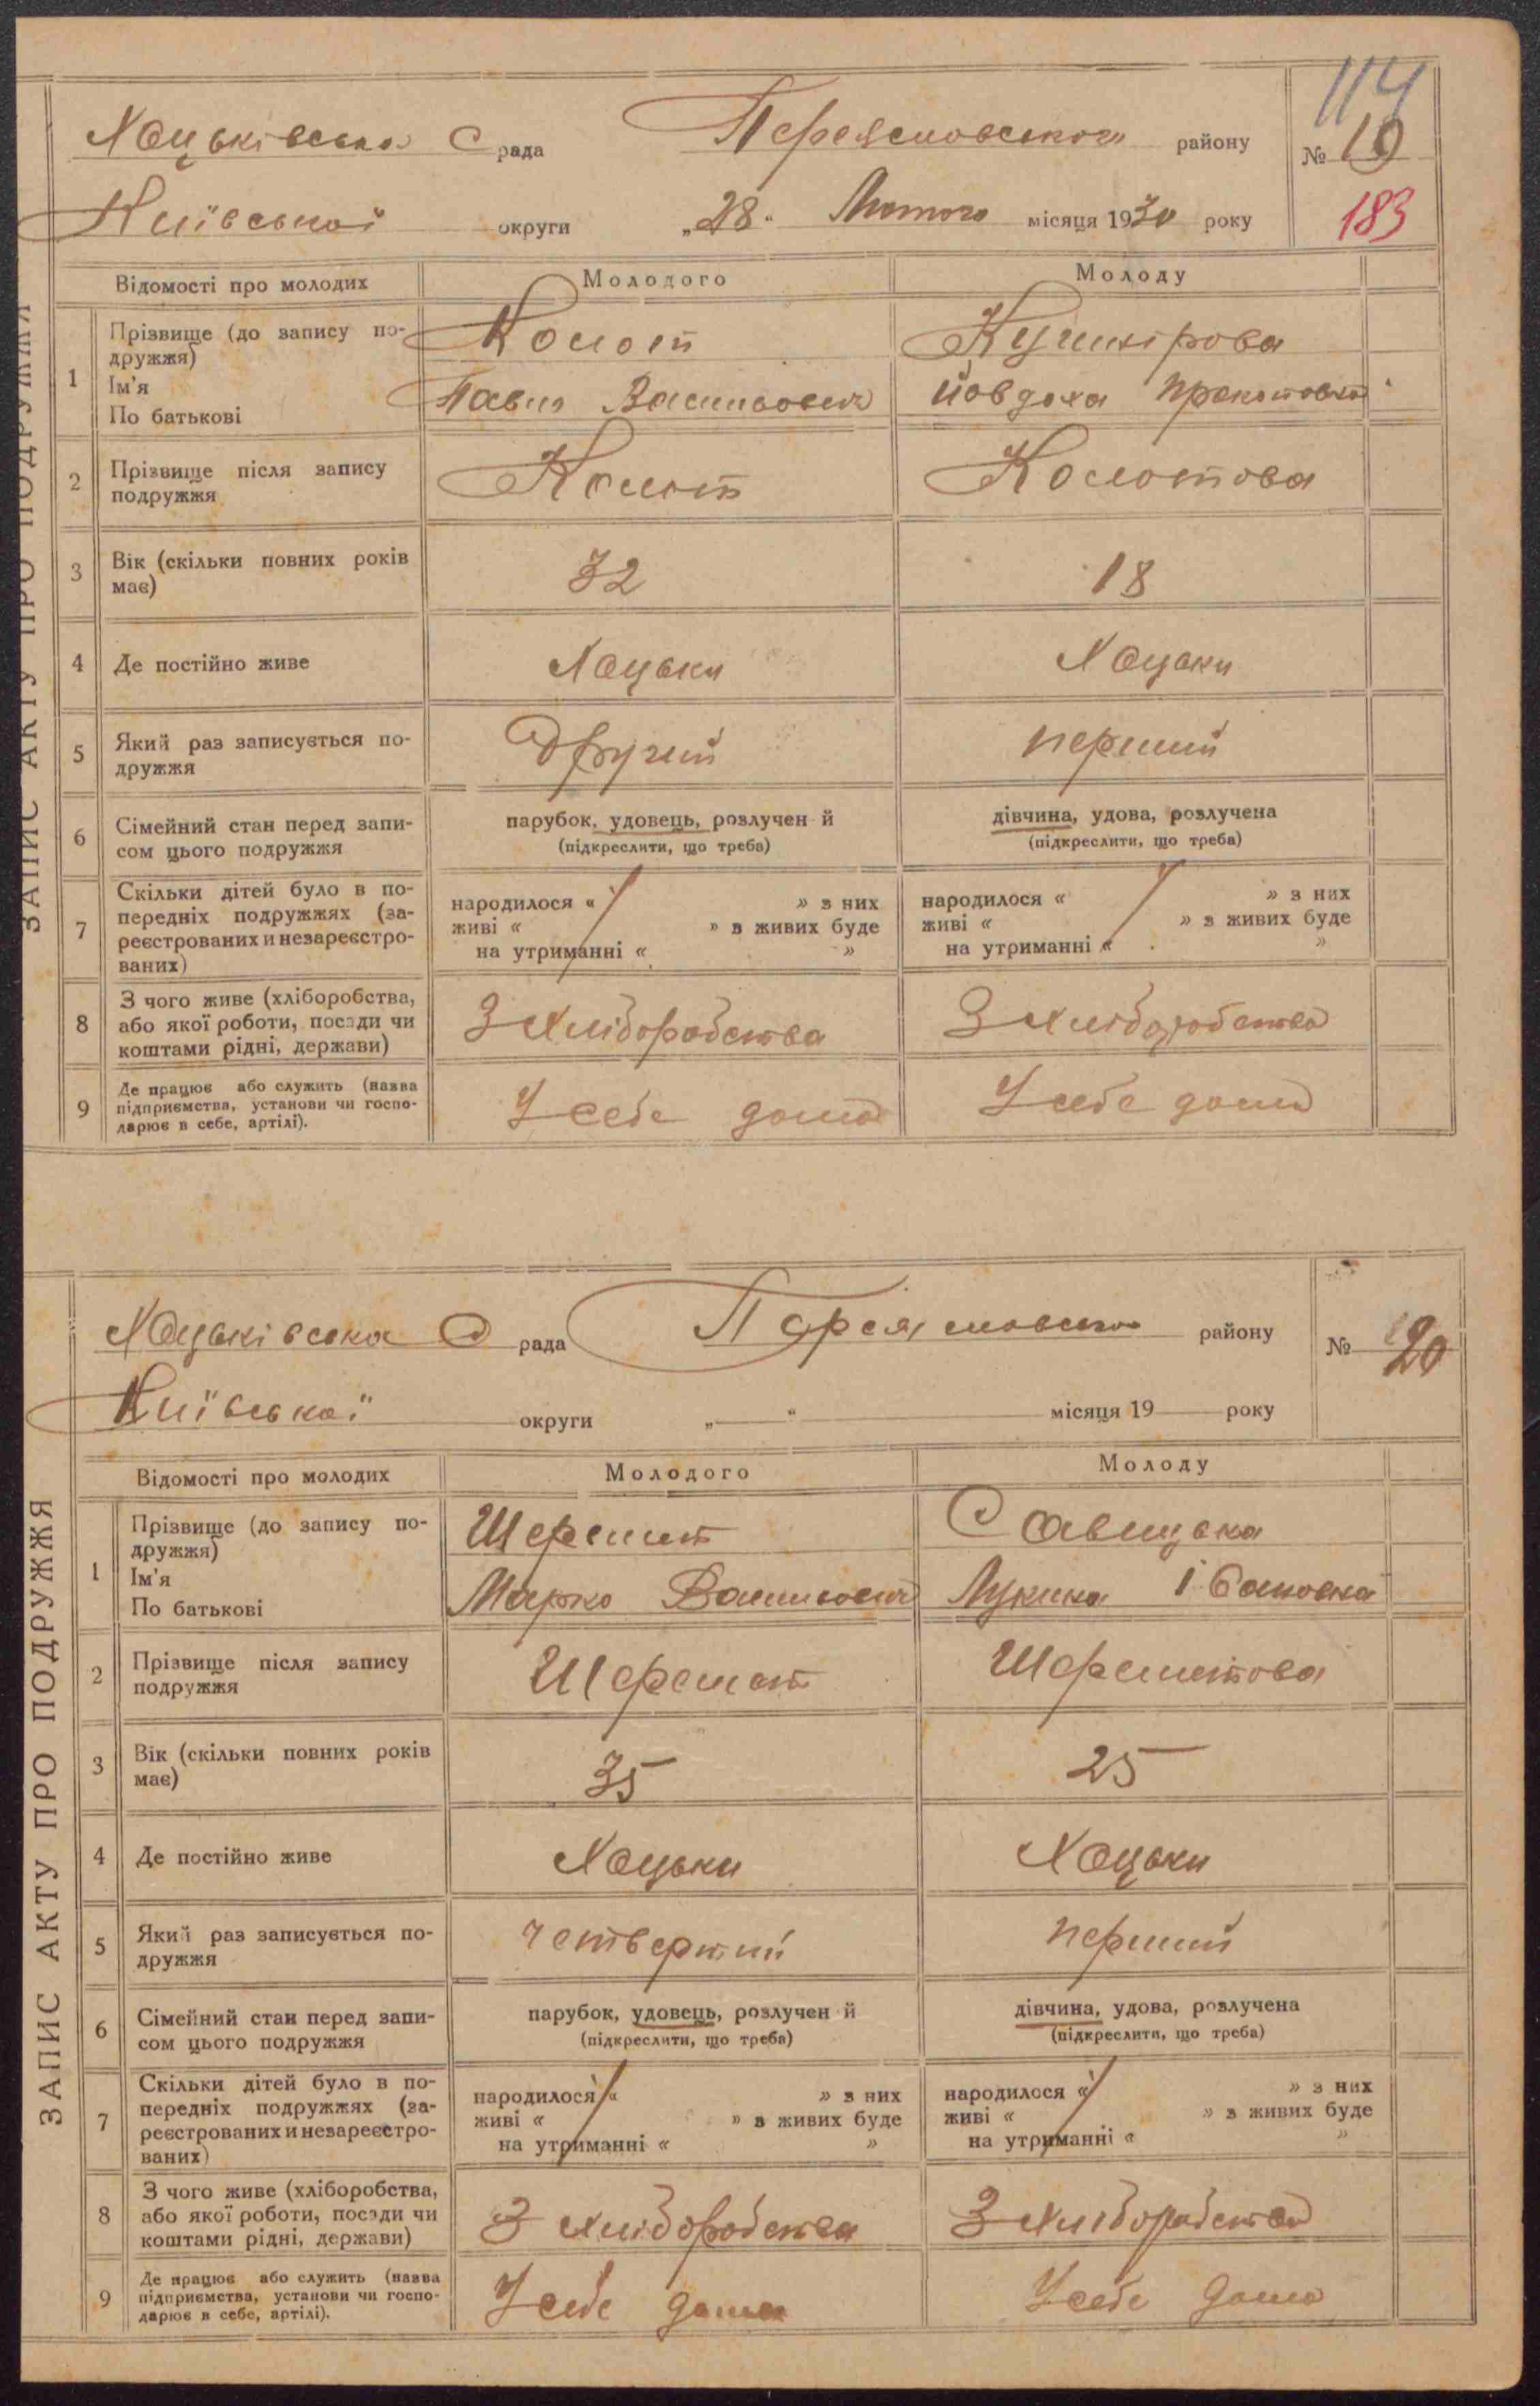 114
Хоцьківська С рада Переяславського району № 19
Київської округи „28“ Лютого місяця 1930 року 183
ЗАПИС АКТУ ПРО ПОДРУЖЖЯ
Відомості про молодих Молодого Молоду
1 Прізвище (до запису по-
дружжя) Коломт Кушнірова
Ім'я
По батькові Павло Васильович Йовдоха Прокоповна
2 Прізвище після запису
подружжя Коломт Коломтова
3 Вік (скільки повних років
має) 32 18
4 Де постійно живе Хоцьки Хоцьки
5 Який раз записується по-
дружжя Другий перший
6 Сімейний стан перед запи-
сом цього подружжя парубок, удовець, розлучен й дівчина, удова, розлучена
(підкреслити, що треба) (підкреслити, що треба)
7 Скільки дітей було в по-
передніх подружжях (за-
реєстрованих и незареєстро-
ваних)
народилося « » з них народилося « » з них
живі « » з живих буде живі « » з живих буде
на утриманні « » на утриманні « »
8 З чого живе (хліборобства,
або якої роботи, посади чи
коштами рідні, держави) З хліборобства З хліборобства
9 Де працює або служить (назва
підприємства, установи чи госпо-
дарює в себе, артілі). У себе дома У себе дома
Хоцьківська С рада Переяславського району № 20
Київської округи „ “ місяця 19 року
ЗАПИС АКТУ ПРО ПОДРУЖЖЯ
Відомості про молодих Молодого Молоду
1 Прізвище (до запису по-
дружжя) Шеремет Савицька
Ім'я
По батькові Марко Васильович Лукина Івановна
2 Прізвище після запису
подружжя Шеремет Шереметова
3 Вік (скільки повних років
має) 35 25
4 Де постійно живе Хоцьки Хоцьки
5 Який раз записується по-
дружжя четвертий перший
6 Сімейний стан перед запи-
сом цього подружжя парубок, удовець, розлучен й дівчина, удова, розлучена
(підкреслити, що треба) (підкреслити, що треба)
7 Скільки дітей було в по-
передніх подружжях (за-
реєстрованих и незареєстро-
ваних)
народилося « » з них народилося « » з них
живі « » з живих буде живі « » з живих буде
на утриманні « » на утриманні « »
8 З чого живе (хліборобства,
або якої роботи, посади чи
коштами рідні, держави) З хліборобства З хліборобства
9 Де працює або служить (назва
підприємства, установи чи госпо-
дарює в себе, артілі). У себе дома У себе дома